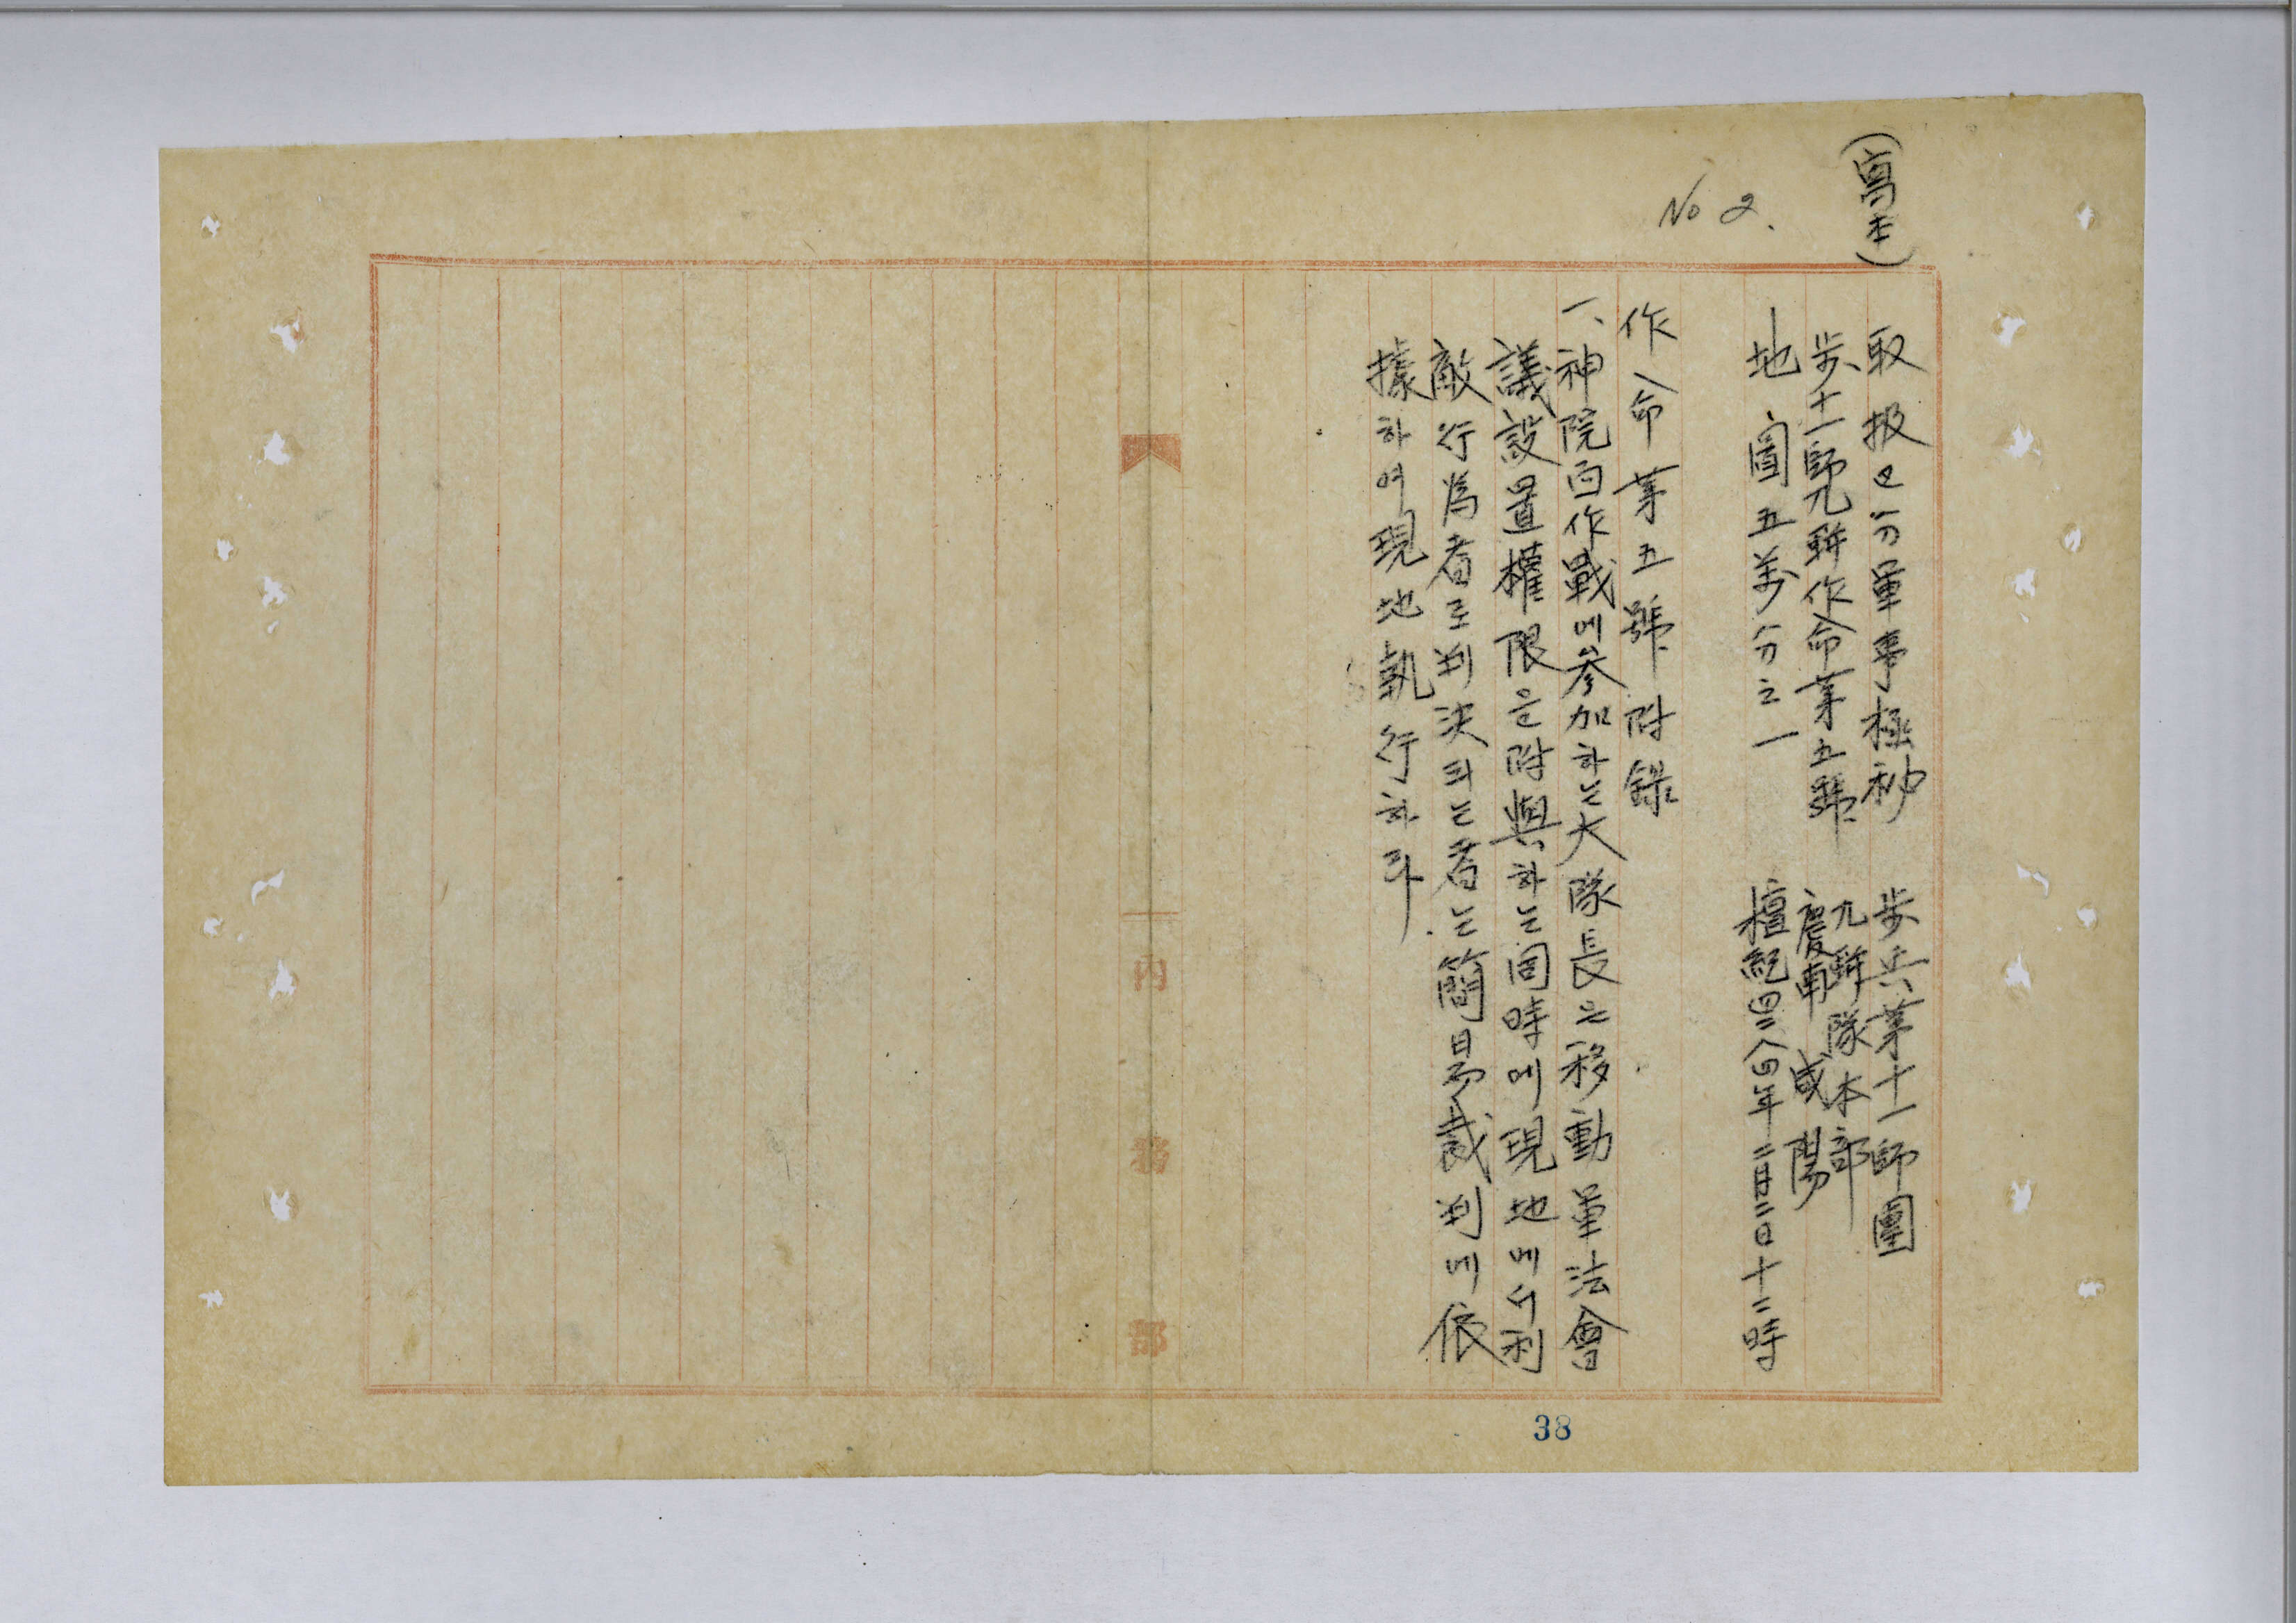 (寫本)
No 2.
取扱区分軍事極秘
步十一師九聯作命第五號
地圖五萬分之一
步兵第十一師團
九聯隊本部
慶南 咸陽
檀紀四二八四年二月二日十二時
作命第五號附錄
一、神院面作戰에参加하는大隊長은移動軍法會
議設置權限은附與하는同時에現地에서利
敵行爲者로判決되는者는簡易裁判에依
據하여現地執行하라
內務部
38